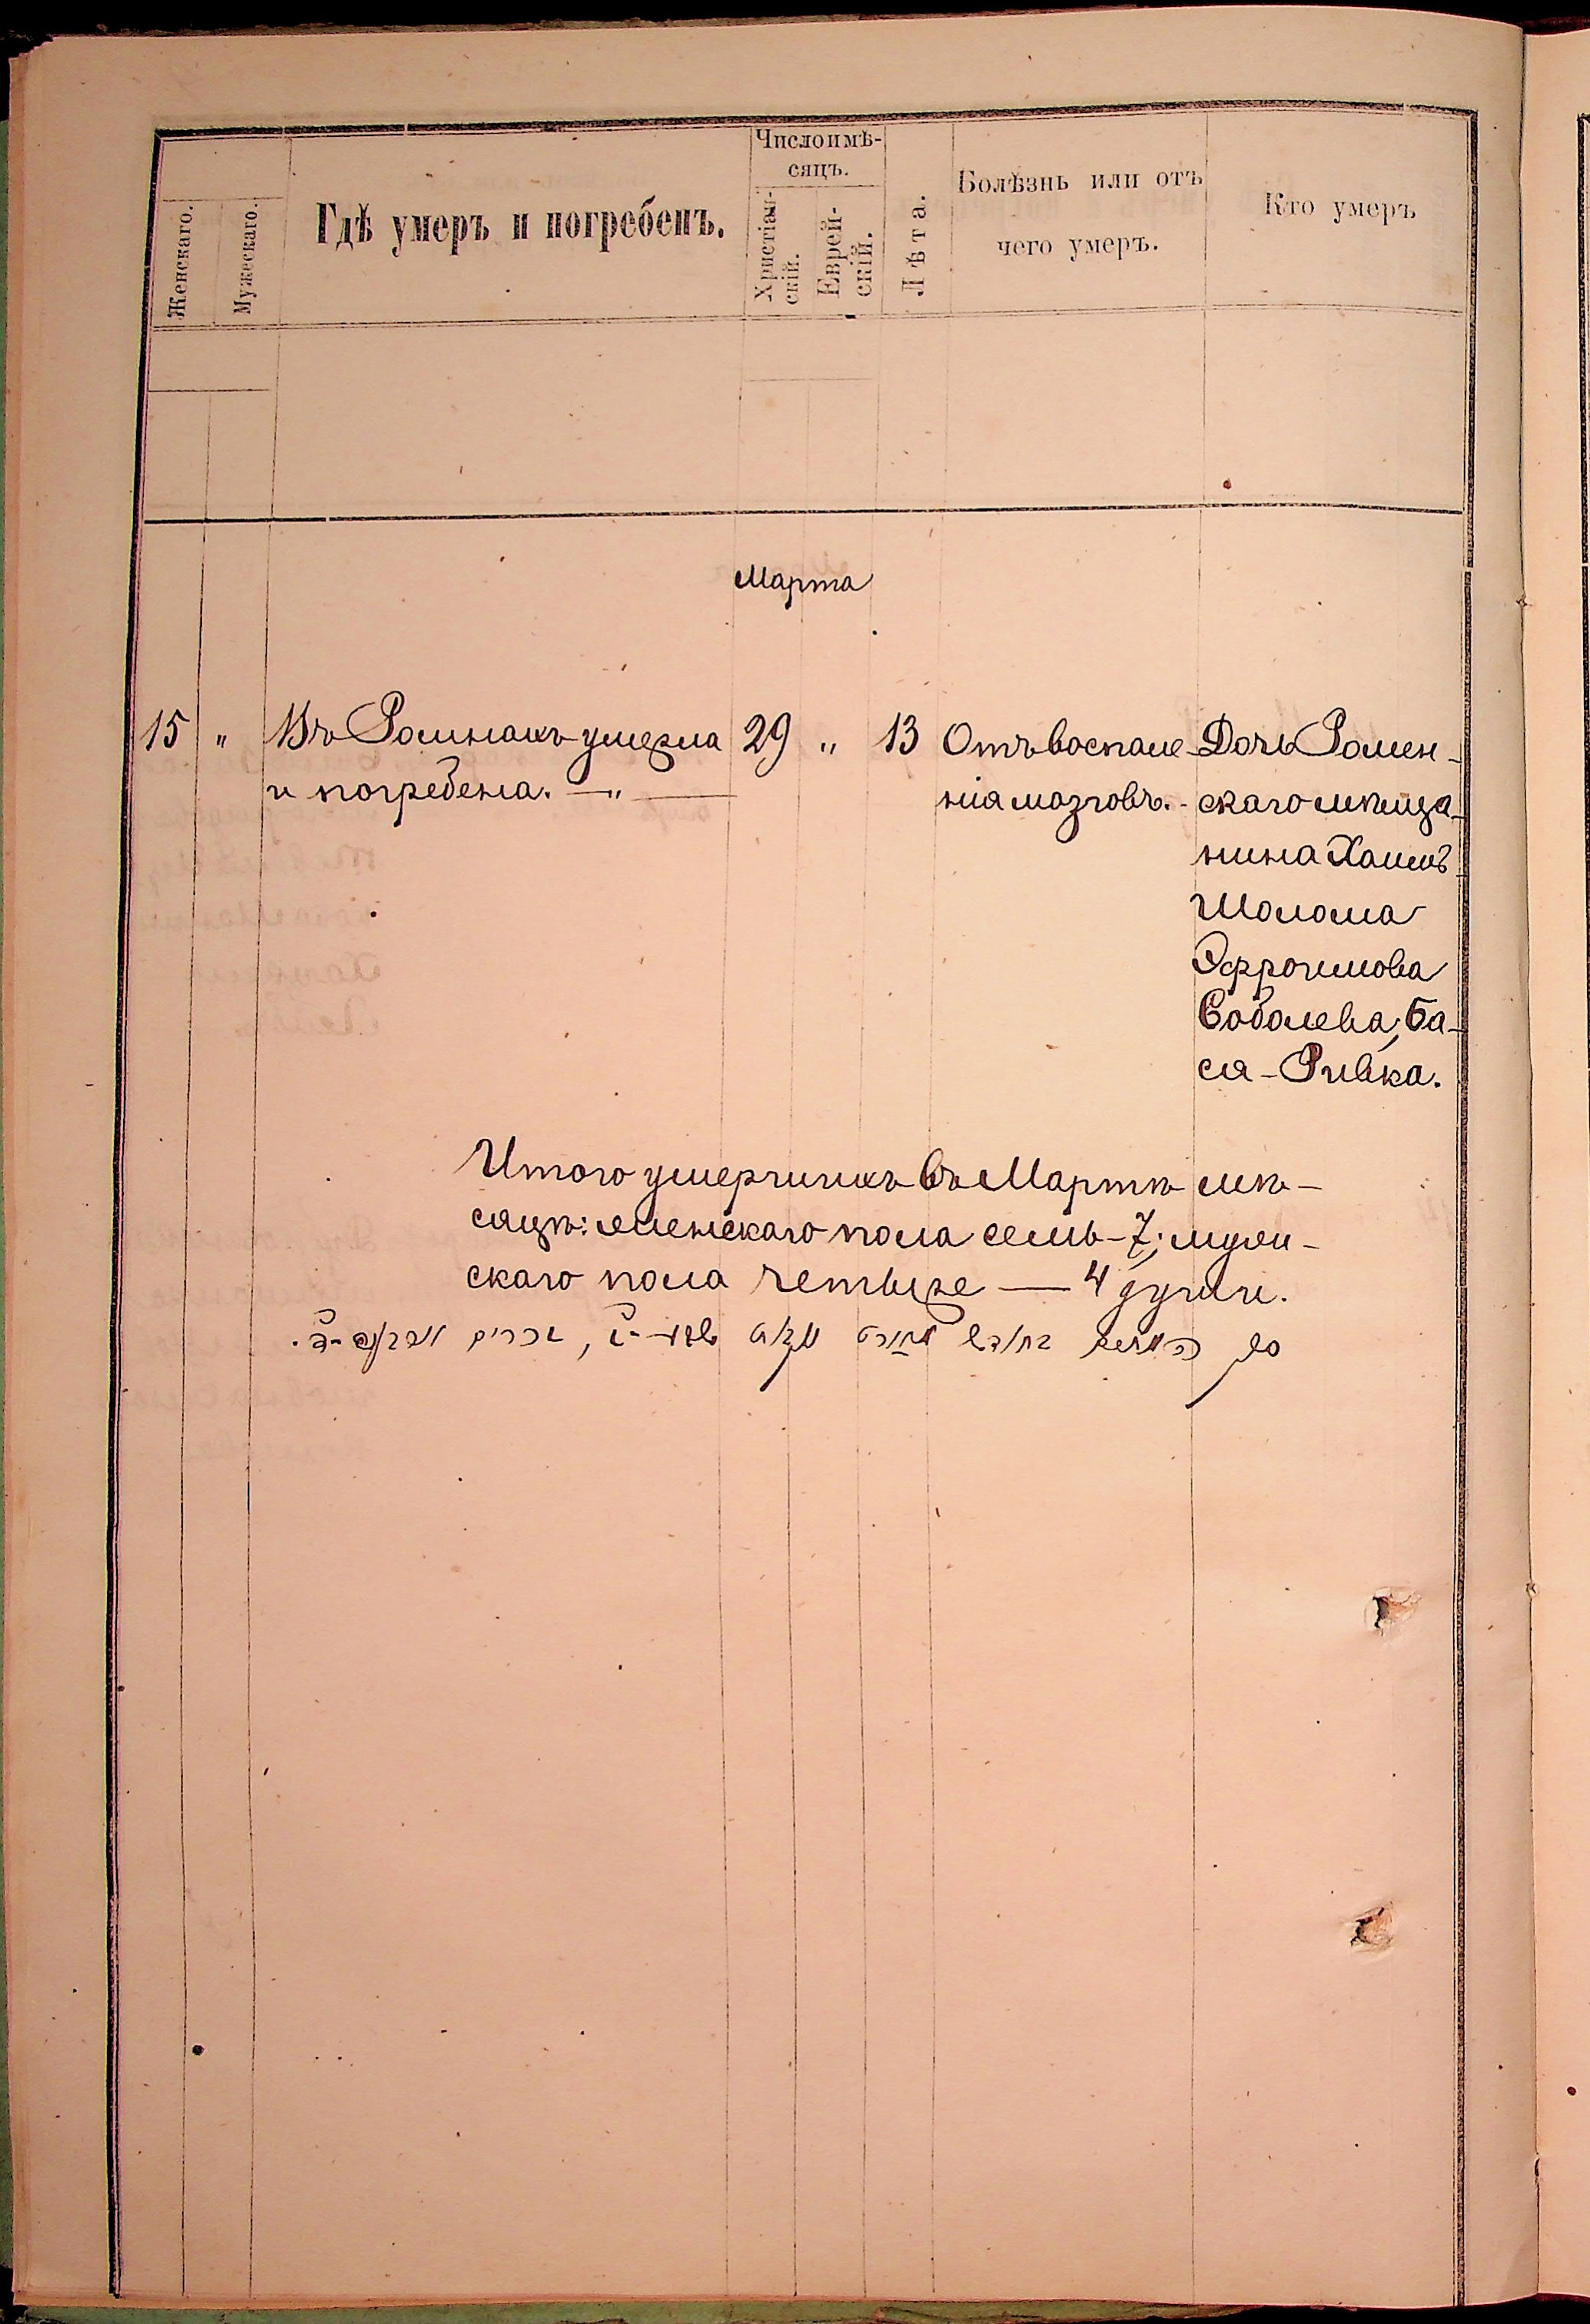 Женскаго.
Мужескаго.
Гдѣ умеръ и погребенъ.
Число и мѣ-
сяцъ.
Христіан-
скій.
Еврей-
скій.
Лѣта.
Болѣзнь или отъ
чего умеръ.
Кто умеръ
Марта
15 " Въ Ромнахъ умерла 29 " 13 Отъ воспале- Дочь Ромен-
и погребена. —"— нія мозговъ. - скаго мѣща-
нина Хаимъ
Шолома
Эфроимова
Соболева, Ба-
ся-Ривка.
Итого умершихъ въ Мартѣ мѣ-
сяцѣ: женскаго пола семь - 7; муж-
скаго пола четыре — 4 души.